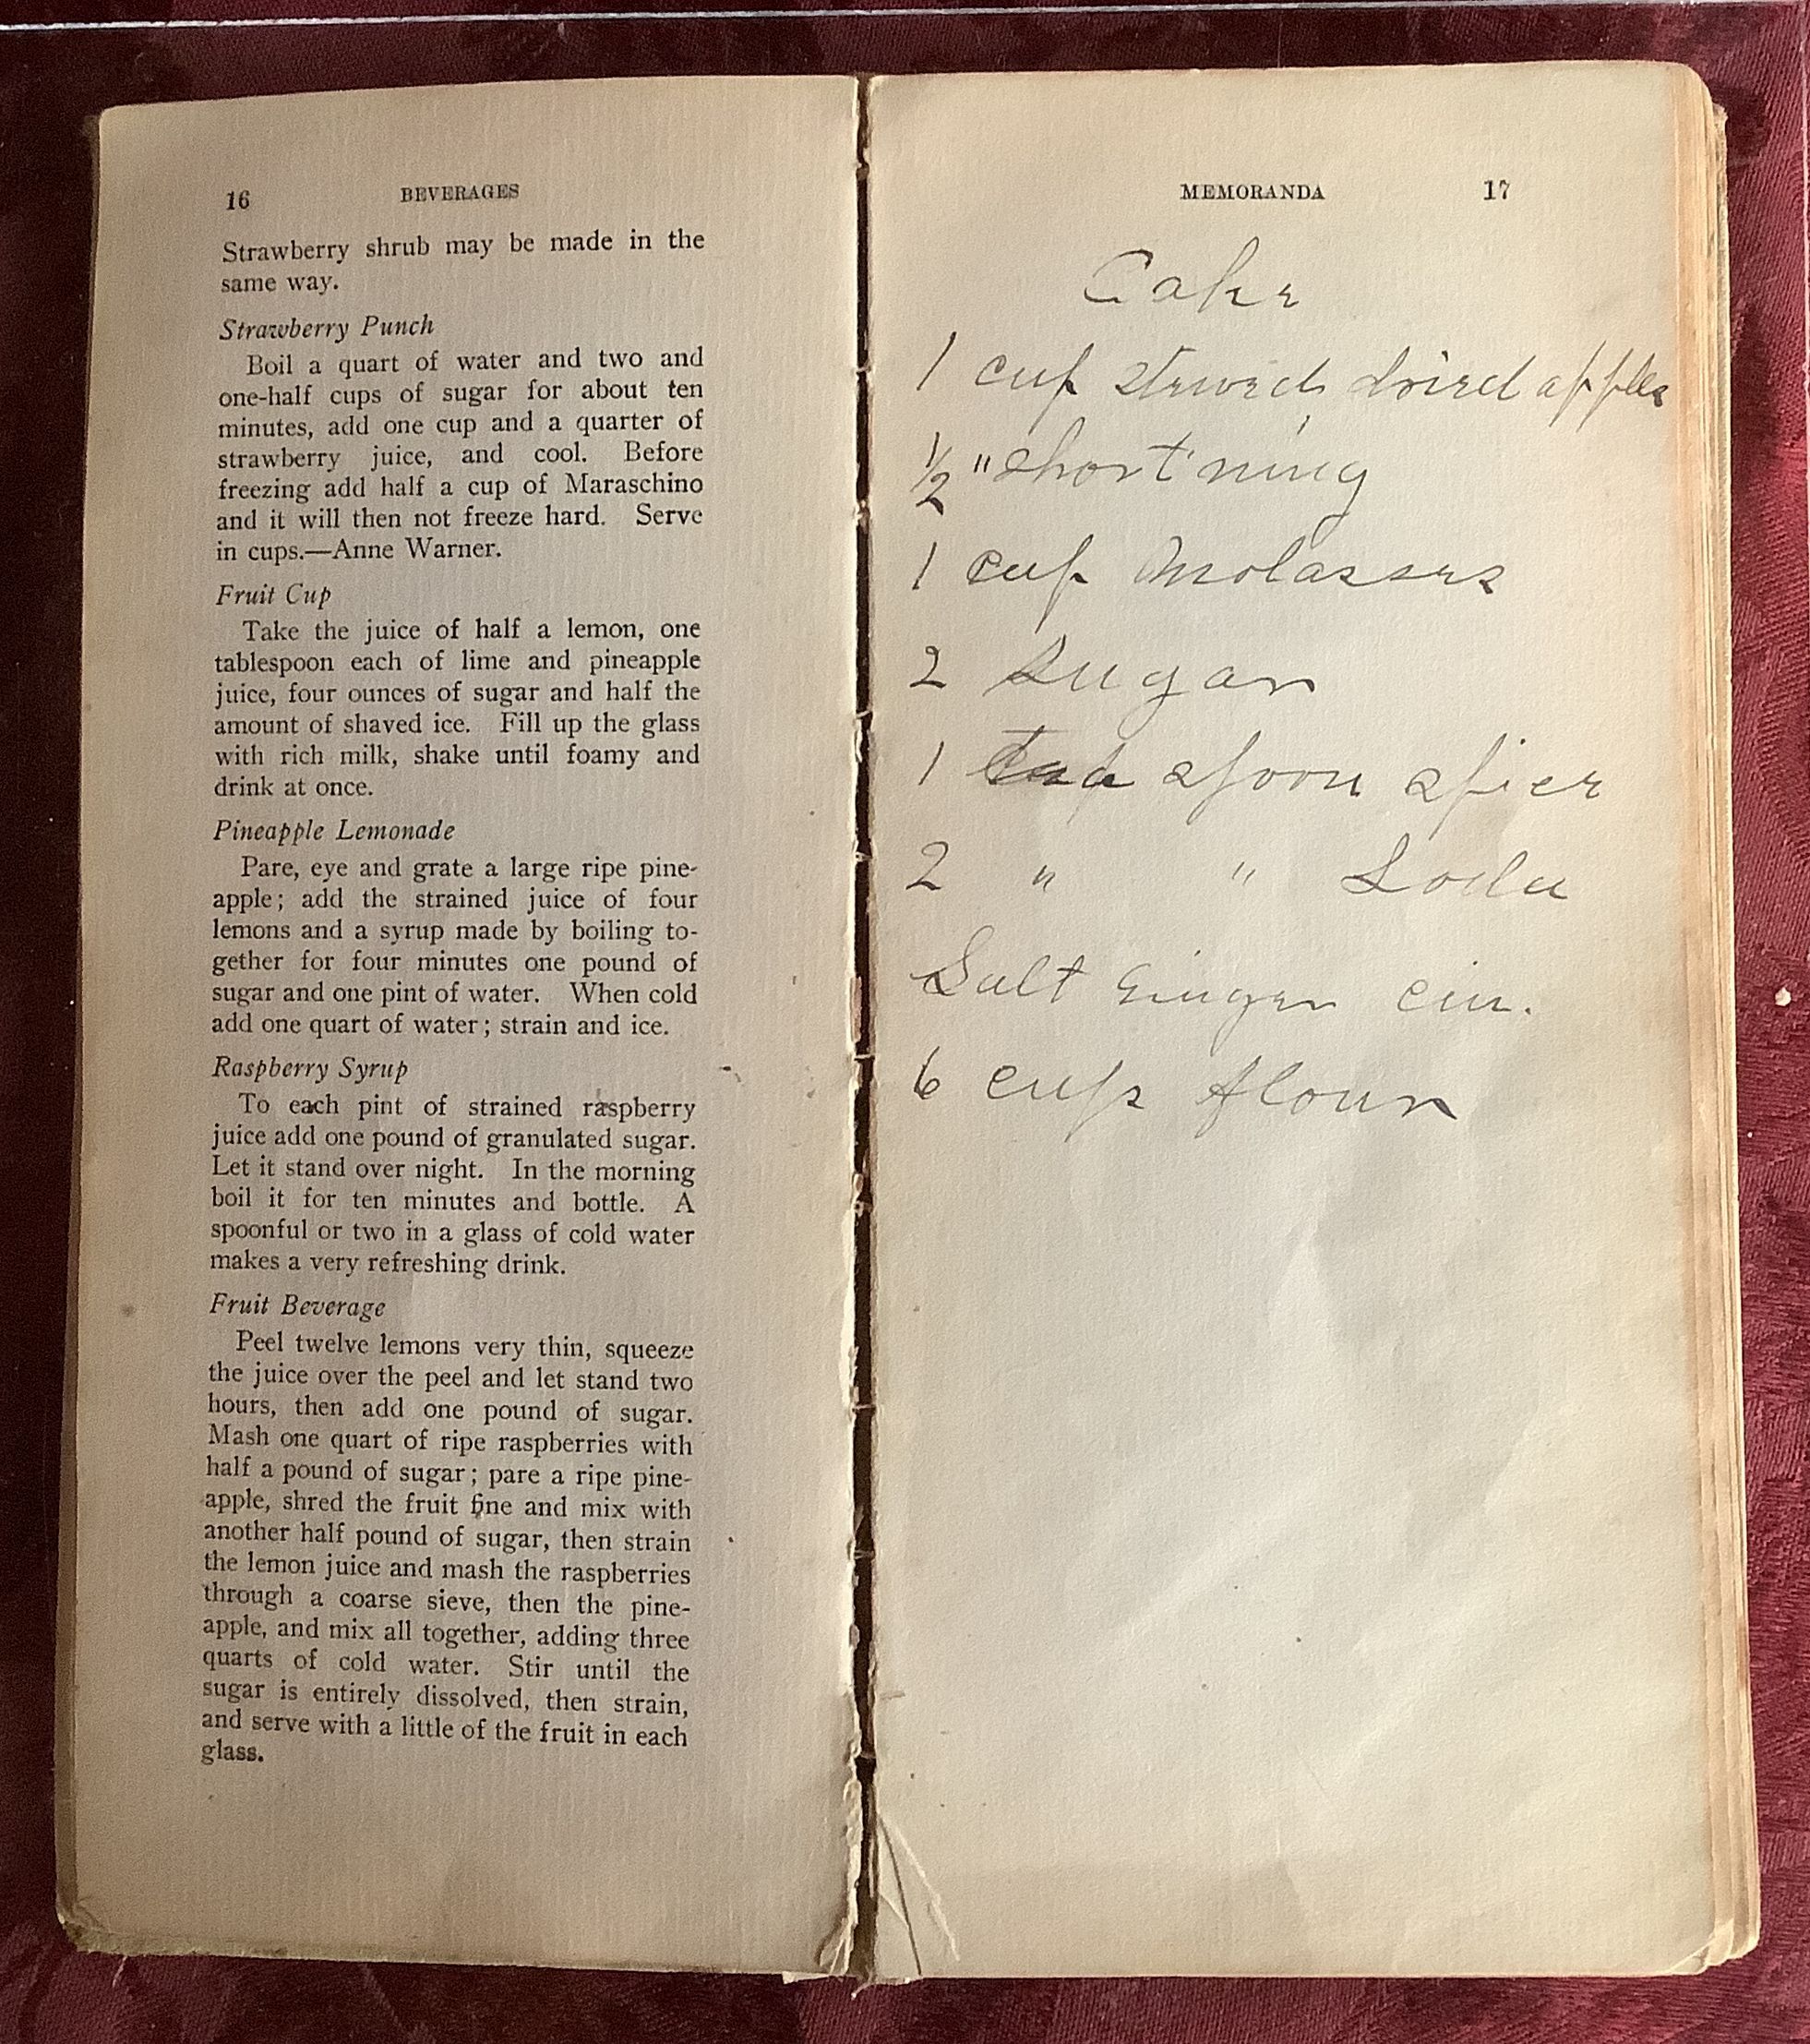 16 BEVERAGES
Strawberry shrub may be made in the
same way.
Strawberry Punch
Boil a quart of water and two and
one-half cups of sugar for about ten
minutes, add one cup and a quarter of
strawberry juice, and cool. Before
freezing add half a cup of Maraschino
and it will then not freeze hard. Serve
in cups.—Anne Warner.
Fruit Cup
Take the juice of half a lemon, one
tablespoon each of lime and pineapple
juice, four ounces of sugar and half the
amount of shaved ice. Fill up the glass
with rich milk, shake until foamy and
drink at once.
Pineapple Lemonade
Pare, eye and grate a large ripe pine-
apple; add the strained juice of four
lemons and a syrup made by boiling to-
gether for four minutes one pound of
sugar and one pint of water. When cold
add one quart of water; strain and ice.
Raspberry Syrup
To each pint of strained raspberry
juice add one pound of granulated sugar.
Let it stand over night. In the morning
boil it for ten minutes and bottle. A
spoonful or two in a glass of cold water
makes a very refreshing drink.
Fruit Beverage
Peel twelve lemons very thin, squeeze
the juice over the peel and let stand two
hours, then add one pound of sugar.
Mash one quart of ripe raspberries with
half a pound of sugar; pare a ripe pine-
apple, shred the fruit fine and mix with
another half pound of sugar, then strain
the lemon juice and mash the raspberries
through a coarse sieve, then the pine-
apple, and mix all together, adding three
quarts of cold water. Stir until the
sugar is entirely dissolved, then strain,
and serve with a little of the fruit in each
glass.
MEMORANDA 17
Cake
1 cup stewed dried apples
1/2 " short'ning
1 cup Molasses
2 Sugar
1 spoon spice
2 " " Soda
Salt Ginger cin.
6 cups flour